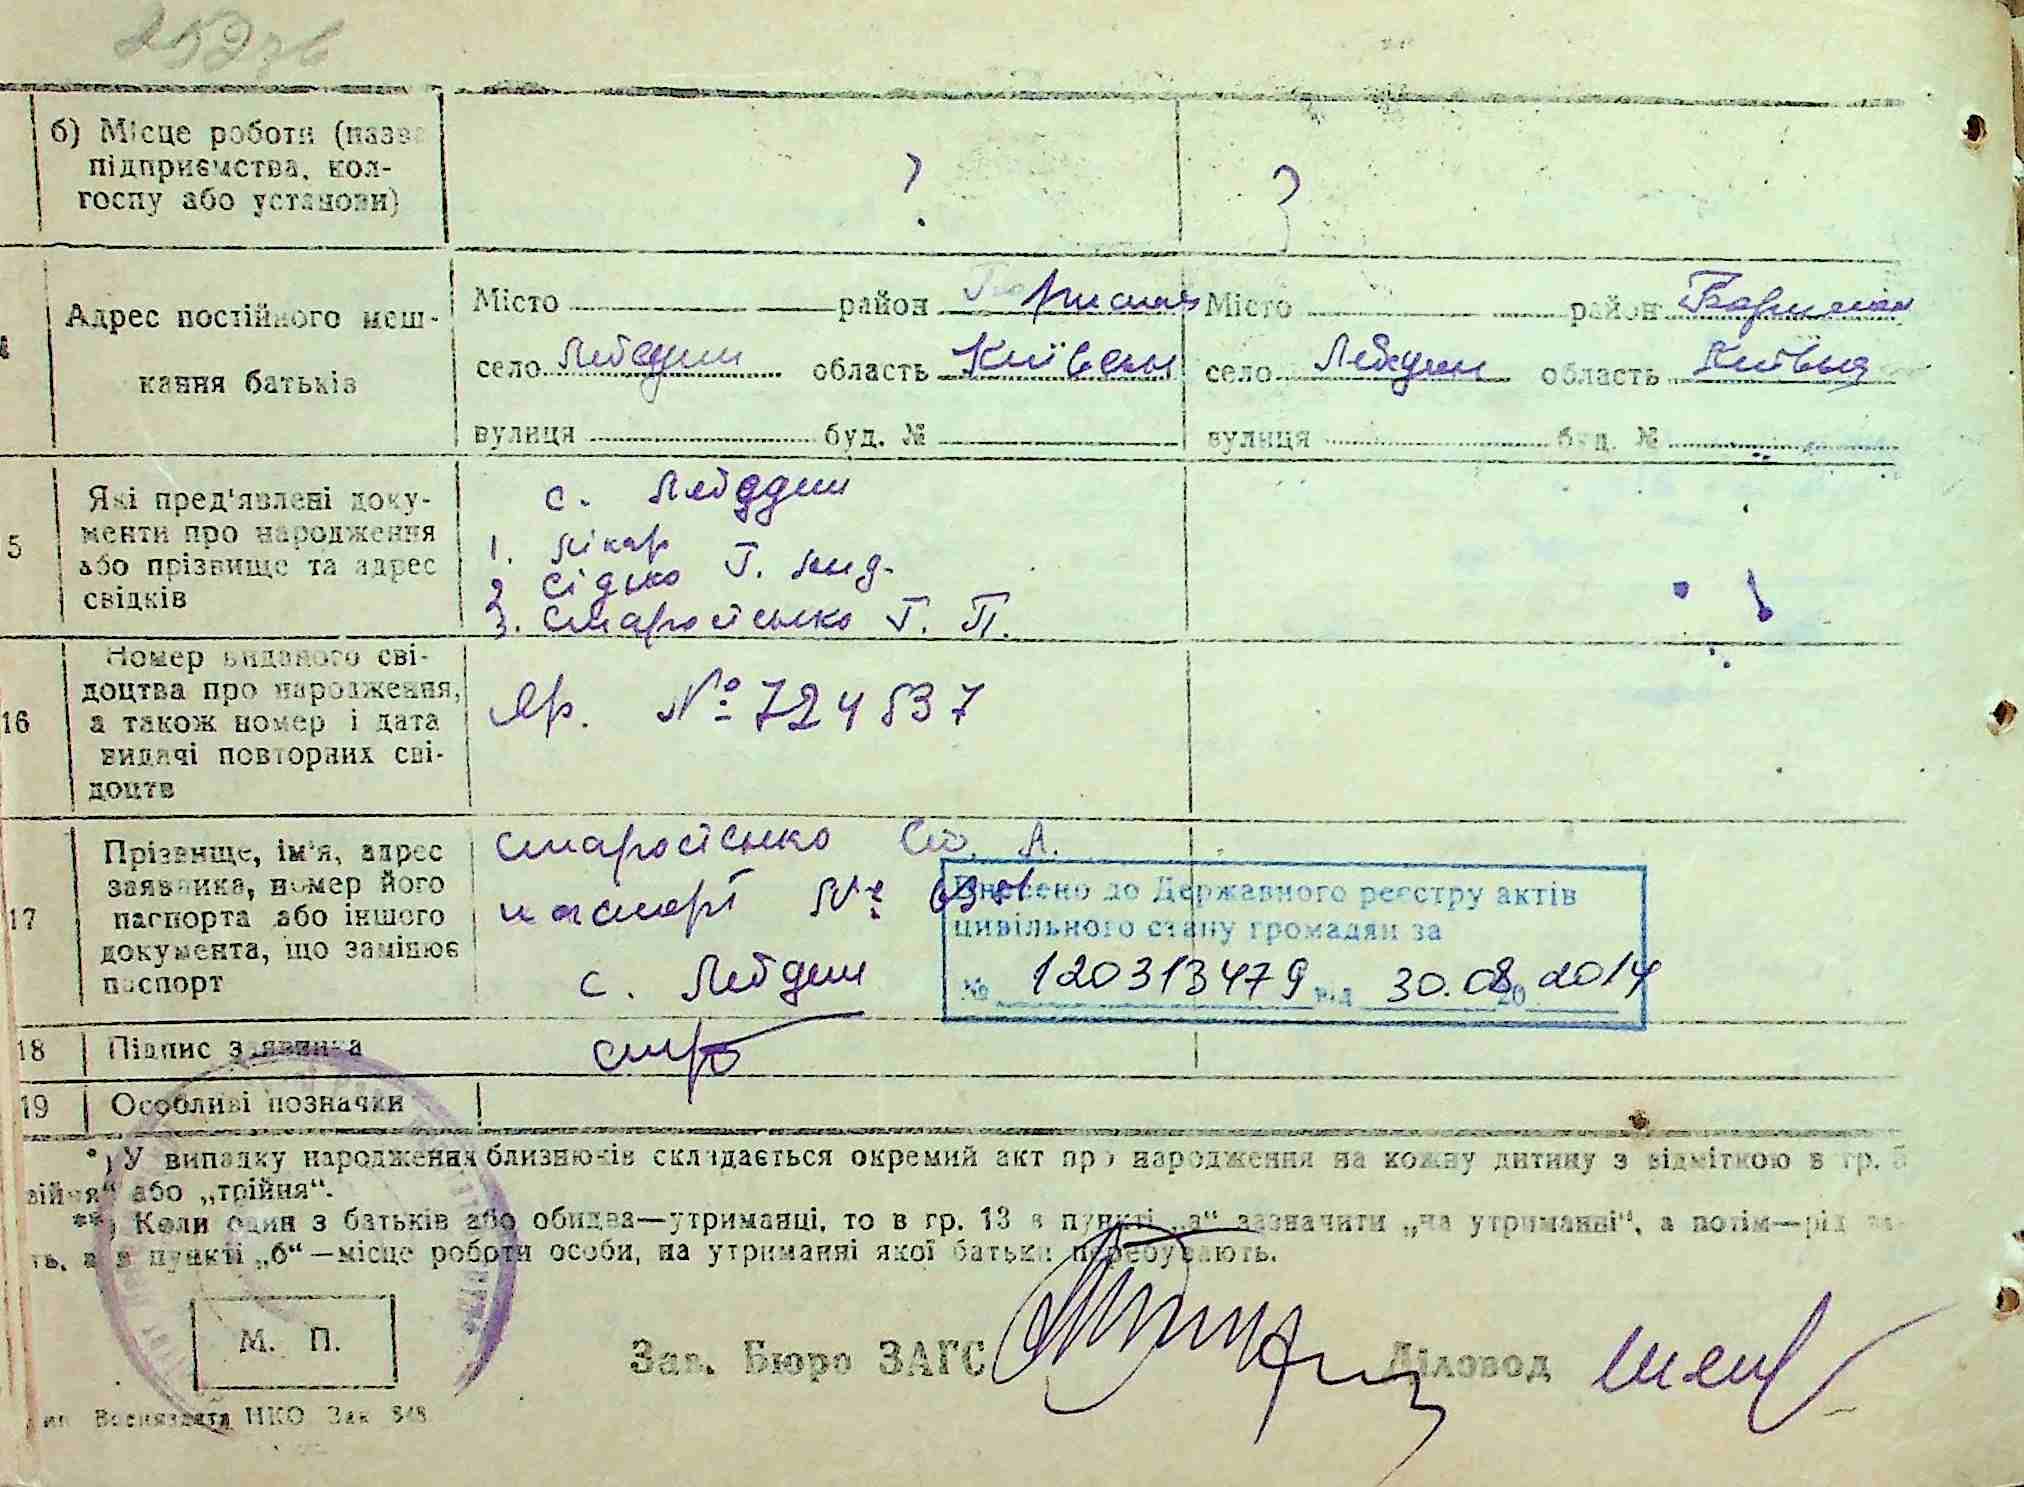 252зв
б) Місце роботи (назва
підприємства, кол-
госпу або установи)
?
?
Адрес постійного меш-
кання батьків
Місто район Бориспіль
село Лебедин область Київськ
вулиця буд. №
Місто район Бориспіль
село Лебедин область Київськ
вулиця буд. №
5
Які пред'явлені доку-
менти про народження
або прізвище та адрес
свідків
с. Лебедин
1. лікар
2 Сідько Г.
3. Старостенко Г. П.
16
Номер виданого сві-
доцтва про народження,
а також номер і дата
видачі повторних сві-
доцтв
Яр. № 724537
17
Прізвище, ім'я, адрес
заявника, номер його
паспорта або іншого
документа, що замінює
паспорт
Старостенко А.
паспорт №
с. Лебедин
Внесено до Державного реєстру актів
цивільного стану громадян за
№ 120313479 від 30.08 20 2014
18 Підпис заявника
19 Особливі позначки
*) У випадку народження близнюків складається окремий акт про народження на кожну дитину з відміткою в гр. 5
війня“ або „трійня“.
**) Коли один з батьків або обидва—утриманці, то в гр. 13 в пункті „а“ зазначити „на утриманні“, а потім—рід за-
ть, а в пункті „б“—місце роботи особи, на утриманні якої батьки перебувають.
М. П.
Зав. Бюро ЗАГС
Діловод
Воениздата НКО Зак 548